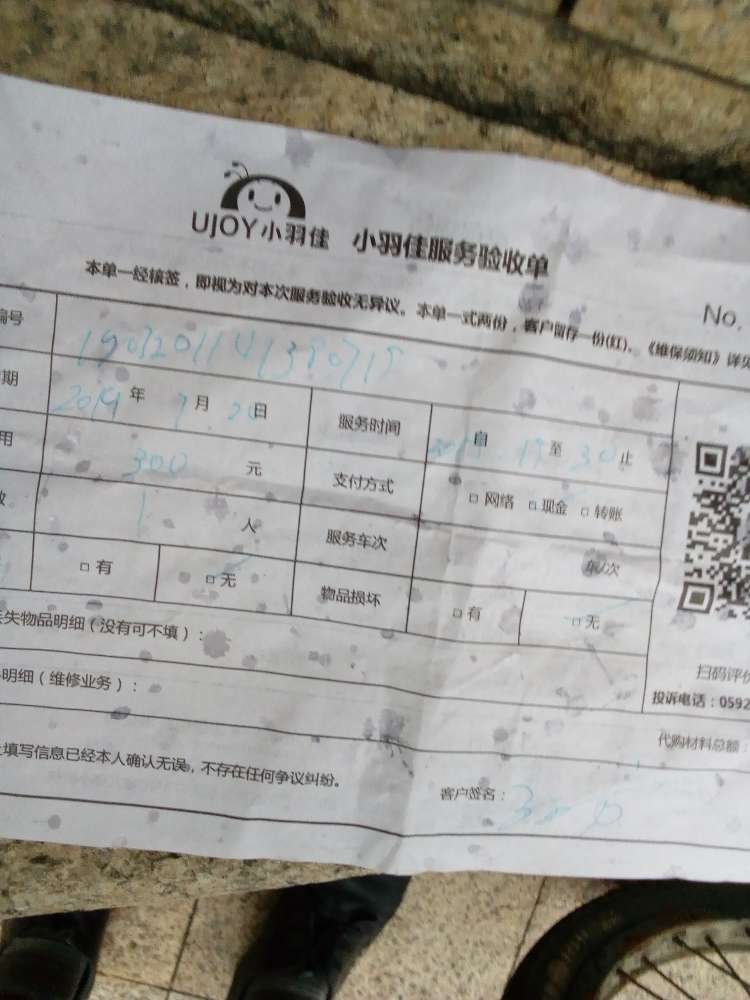 UJOY小羽佳 小羽佳服务验收单
本单一经核签，即视为对本次服务验收无异议。本单一式两份，客户留存一份(红)、《维保须知》详见
No.
编号
期 2019年 月 日 服务时间 自 至 30 止
用 300 元 支付方式 □ 网络 □ 现金 □ 转账
数 1 人 服务车次 车/次
□ 有 □ 无 物品损坏 □ 有 □ 无
失物品明细（没有可不填）：
扫码评价
明细（维修业务）：
投诉电话：0592
代购材料总额：
上填写信息已经本人确认无误，不存在任何争议纠纷。
客户签名：